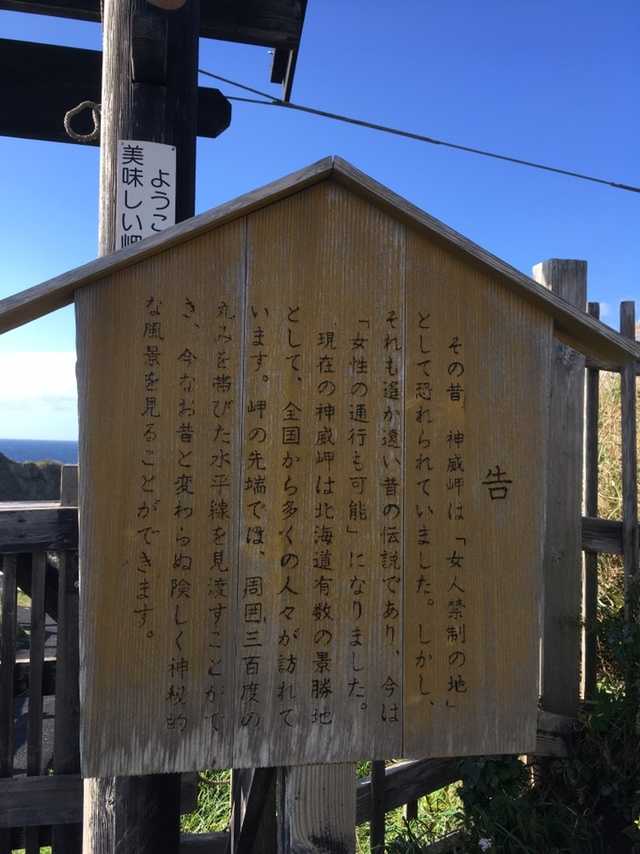 告
その昔　神威岬は「女人禁制の地」
として恐れられていました。しかし、
それも遙か遠い昔の伝説であり、今は
「女性の通行も可能」になりました。
現在の神威岬は北海道有数の景勝地
として、全国から多くの人々が訪れて
います。岬の先端では、周囲三百度の
丸みを帯びた水平線を見渡すことがで
き、今なお昔と変わらぬ険しく神秘的
な風景を見ることができます。
ようこ
美味しい岬